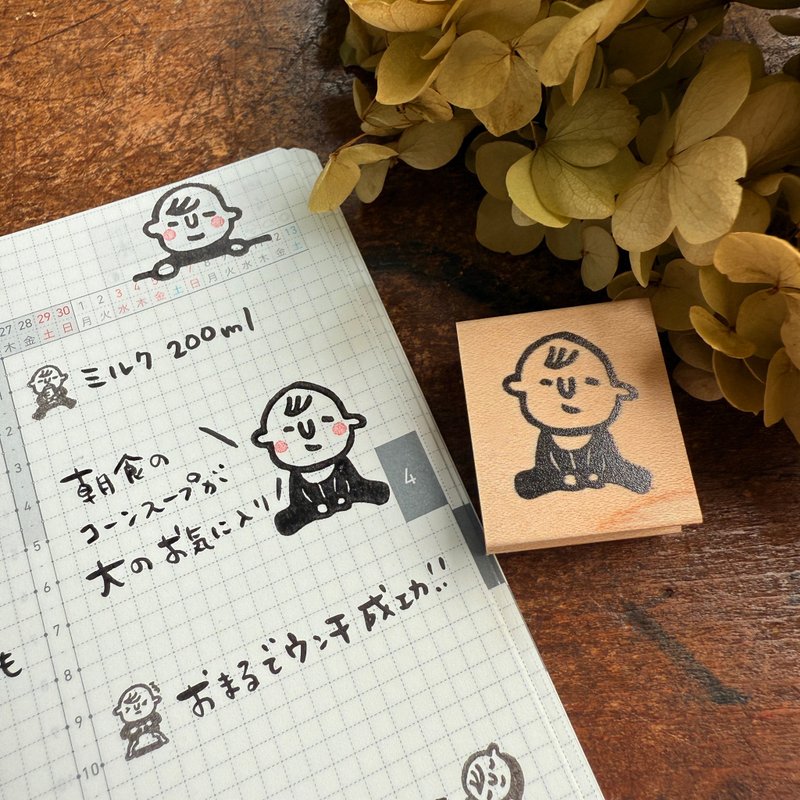 27 28 29 30 1 2 3 4
木 金 土 日 月 火 水 木 金 土 日 月 火 水 木 金 土
2 13
ミルク 200ml
朝食の
コーンスープが
大のお気に入り!
おまるでウンチ成功!!
も
4
2
3
4
5
6
7
8
9
10